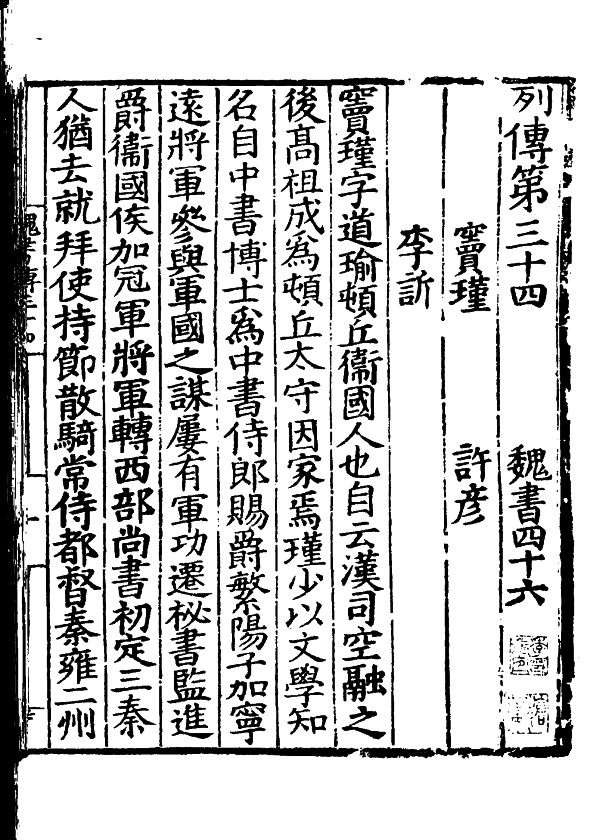 列傳第三十四 魏書四十六
竇瑾 許彥
李訢
竇瑾字道瑜頓丘衞國人也自云漢司空融之
後高祖成爲頓丘太守因家焉瑾少以文學知
名自中書博士爲中書侍郎賜爵繁陽子加寧
遠將軍參與軍國之謀屢有軍功遷祕書監進
爵衞國侯加冠軍將軍轉西部尚書初定三秦
人猶去就拜使持節散騎常侍都督秦雍二州